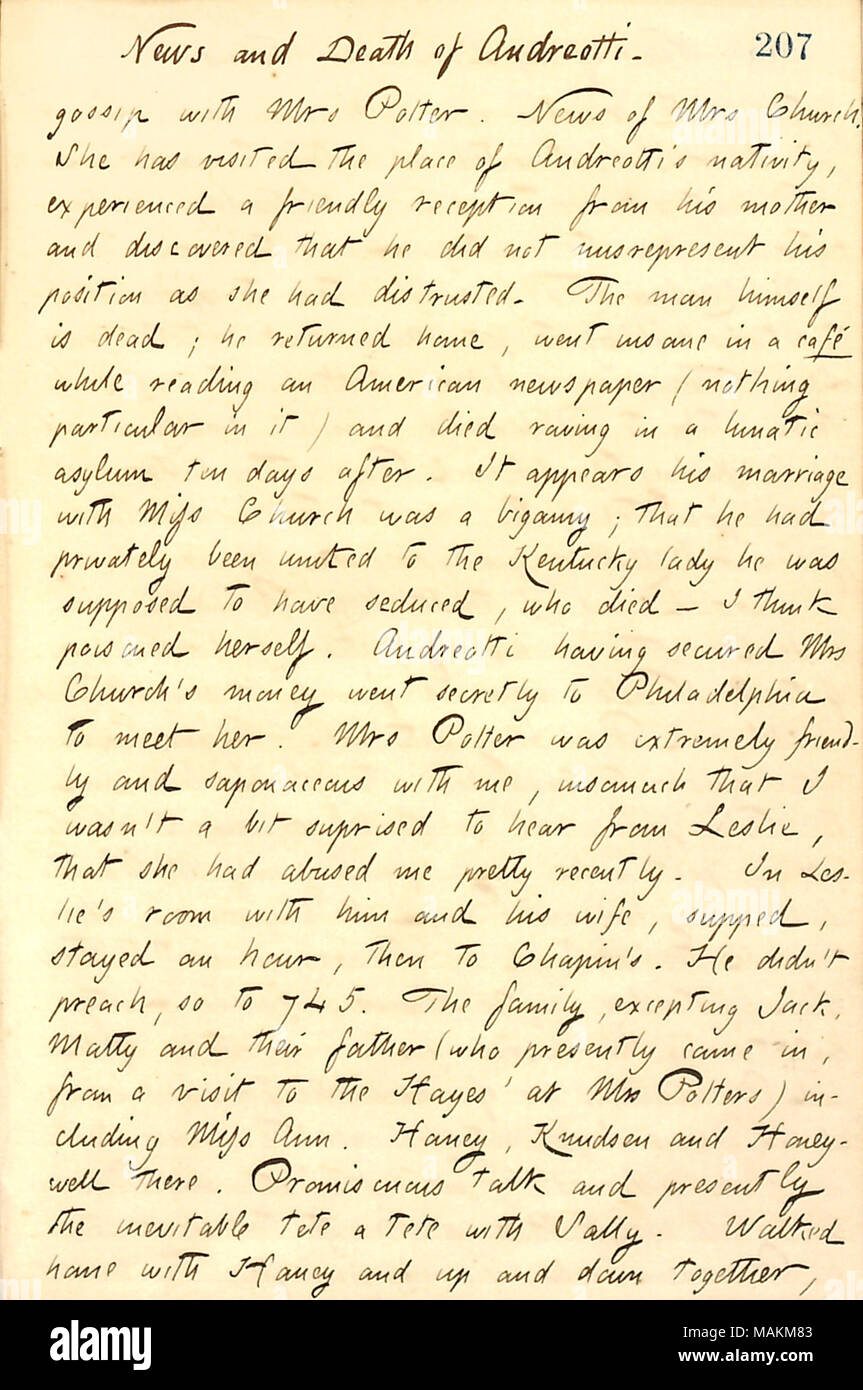 News and Death of Andreotti. 207
gossip with Mrs Potter. News of Mrs Church.
She has visited the place of Andreotti's nativity,
experienced a friendly reception from his mother
and discovered that he did not misrepresent his
position as she had distrusted. The man himself
is dead; he returned home, went insane in a café
while reading an American newspaper (nothing
particular in it) and died raving in a lunatic
asylum ten days after. It appears his marriage
with Miss Church was a bigamy; that he had
privately been united to the Kentucky lady he was
supposed to have seduced, who died — I think
poisoned herself. Andreotti having secured Mrs
Church's money went secretly to Philadelphia
to meet her. Mrs Potter was extremely friend-
ly and saponaceous with me, insomuch that I
wasn't a bit suprised to hear from Leslie,
that she had abused me pretty recently. In Les-
lie's room with him and his wife, supped,
stayed an hour, then to Chapin's. He didn't
preach, so to 745. The family, excepting Jack,
Matty and their father (who presently came in,
from a visit to the Hayes' at Mrs Potters) in-
cluding Miss Ann. Haney, Knudsen and Honey-
well there. Promiscuous talk and presently
the inevitable tete a tete with Sally. Walked
home with Haney and up and down together,
alamy
Image ID: MAKM83
www.alamy.com